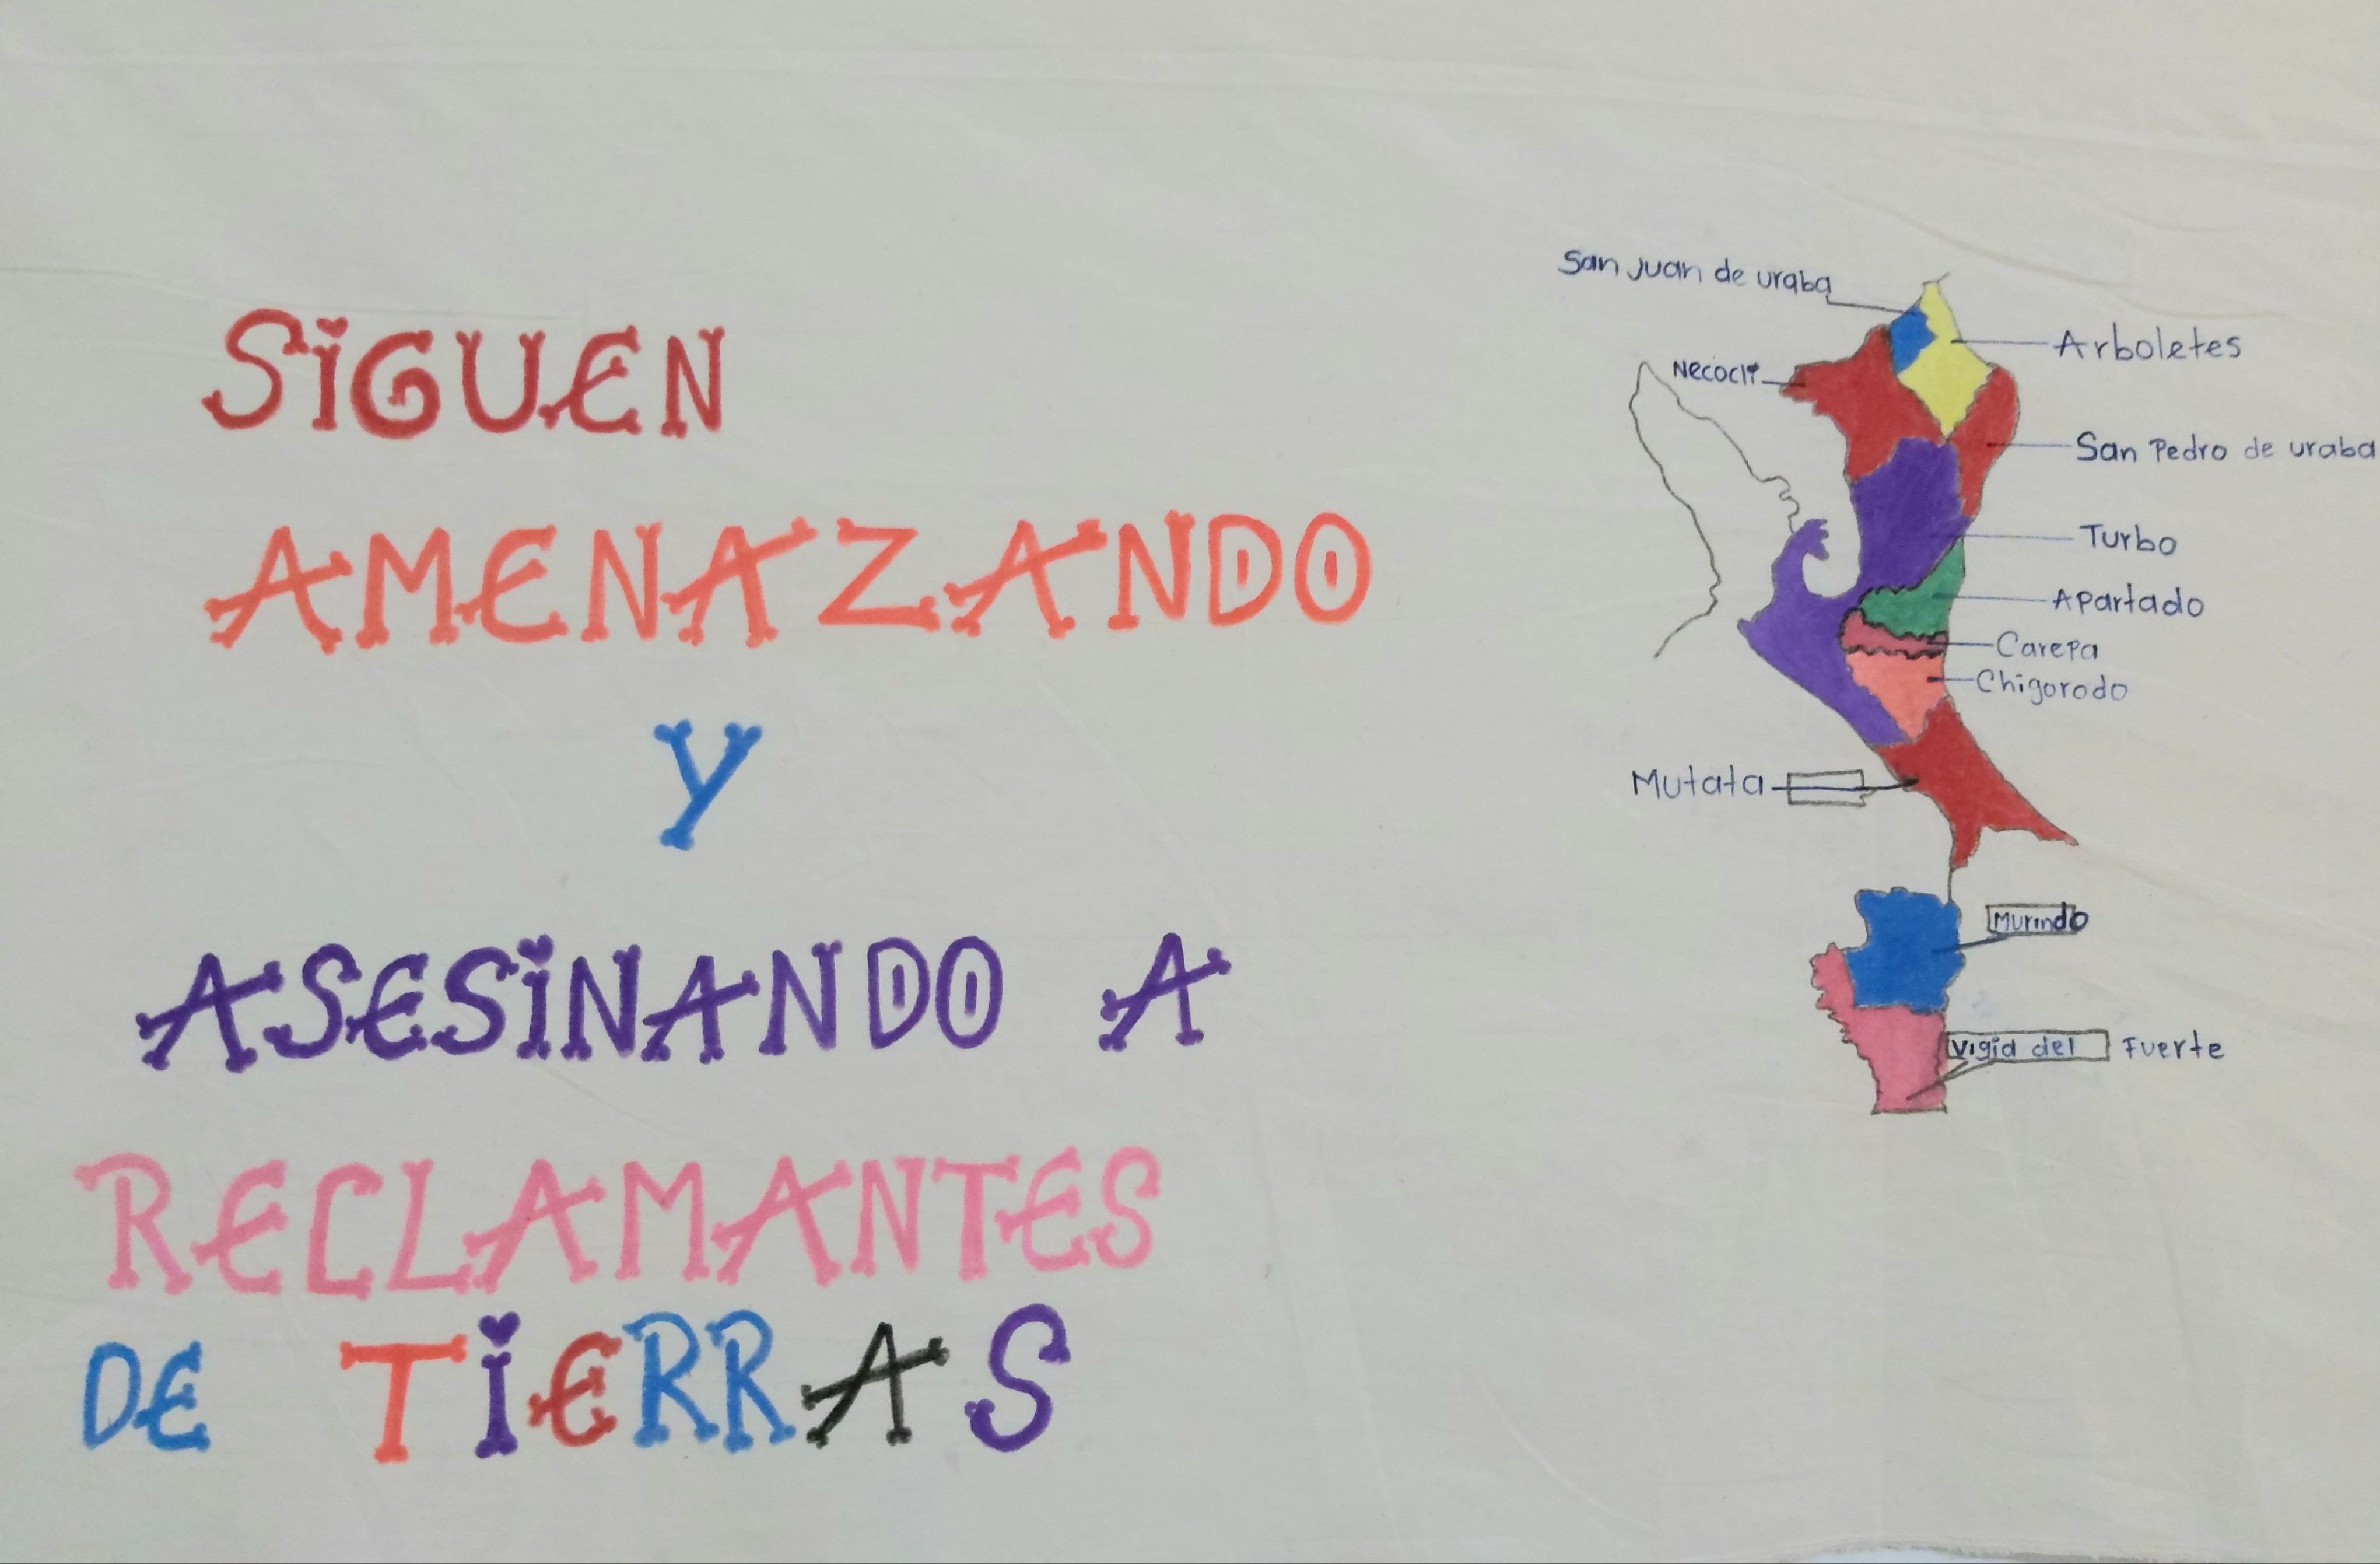 SIGUEN
AMENAZANDO
Y
ASESINANDO A
RECLAMANTES
DE TIERRAS
San Juan de uraba
Arboletes
Necocli
San Pedro de uraba
Turbo
Apartado
Carepa
Chigorodo
Mutata
Murindo
Vigia del Fuerte